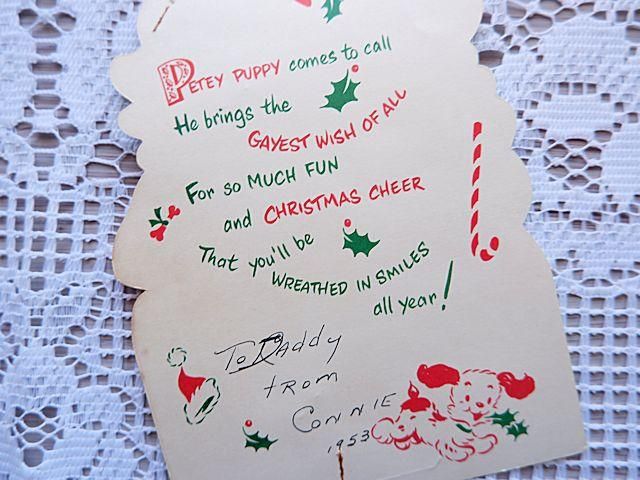 PETEY PUPPY comes to call
He brings the
GAYEST WISH OF ALL
FOR SO MUCH FUN
and CHRISTMAS CHEER
That you'll be
WREATHED IN SMILES
all year!
To Daddy
from
CONNIE
1953